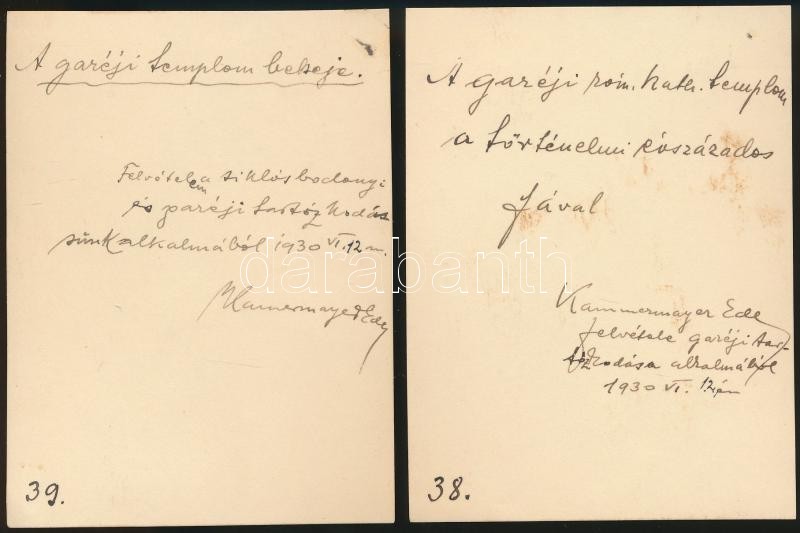 A garéji templom belseje.
Felvételem a siklósbodonyi
és garéji tartózkodá-
sunk alkalmából 1930 VI. 12-én.
Kammermayer Ede
39.
A garéji róm. kath. templom
a történelmi évszázados
fával
Kammermayer Ede
felvétele garéji tar-
tózkodása alkalmából
1930 VI. 12-én
38.
darabanth